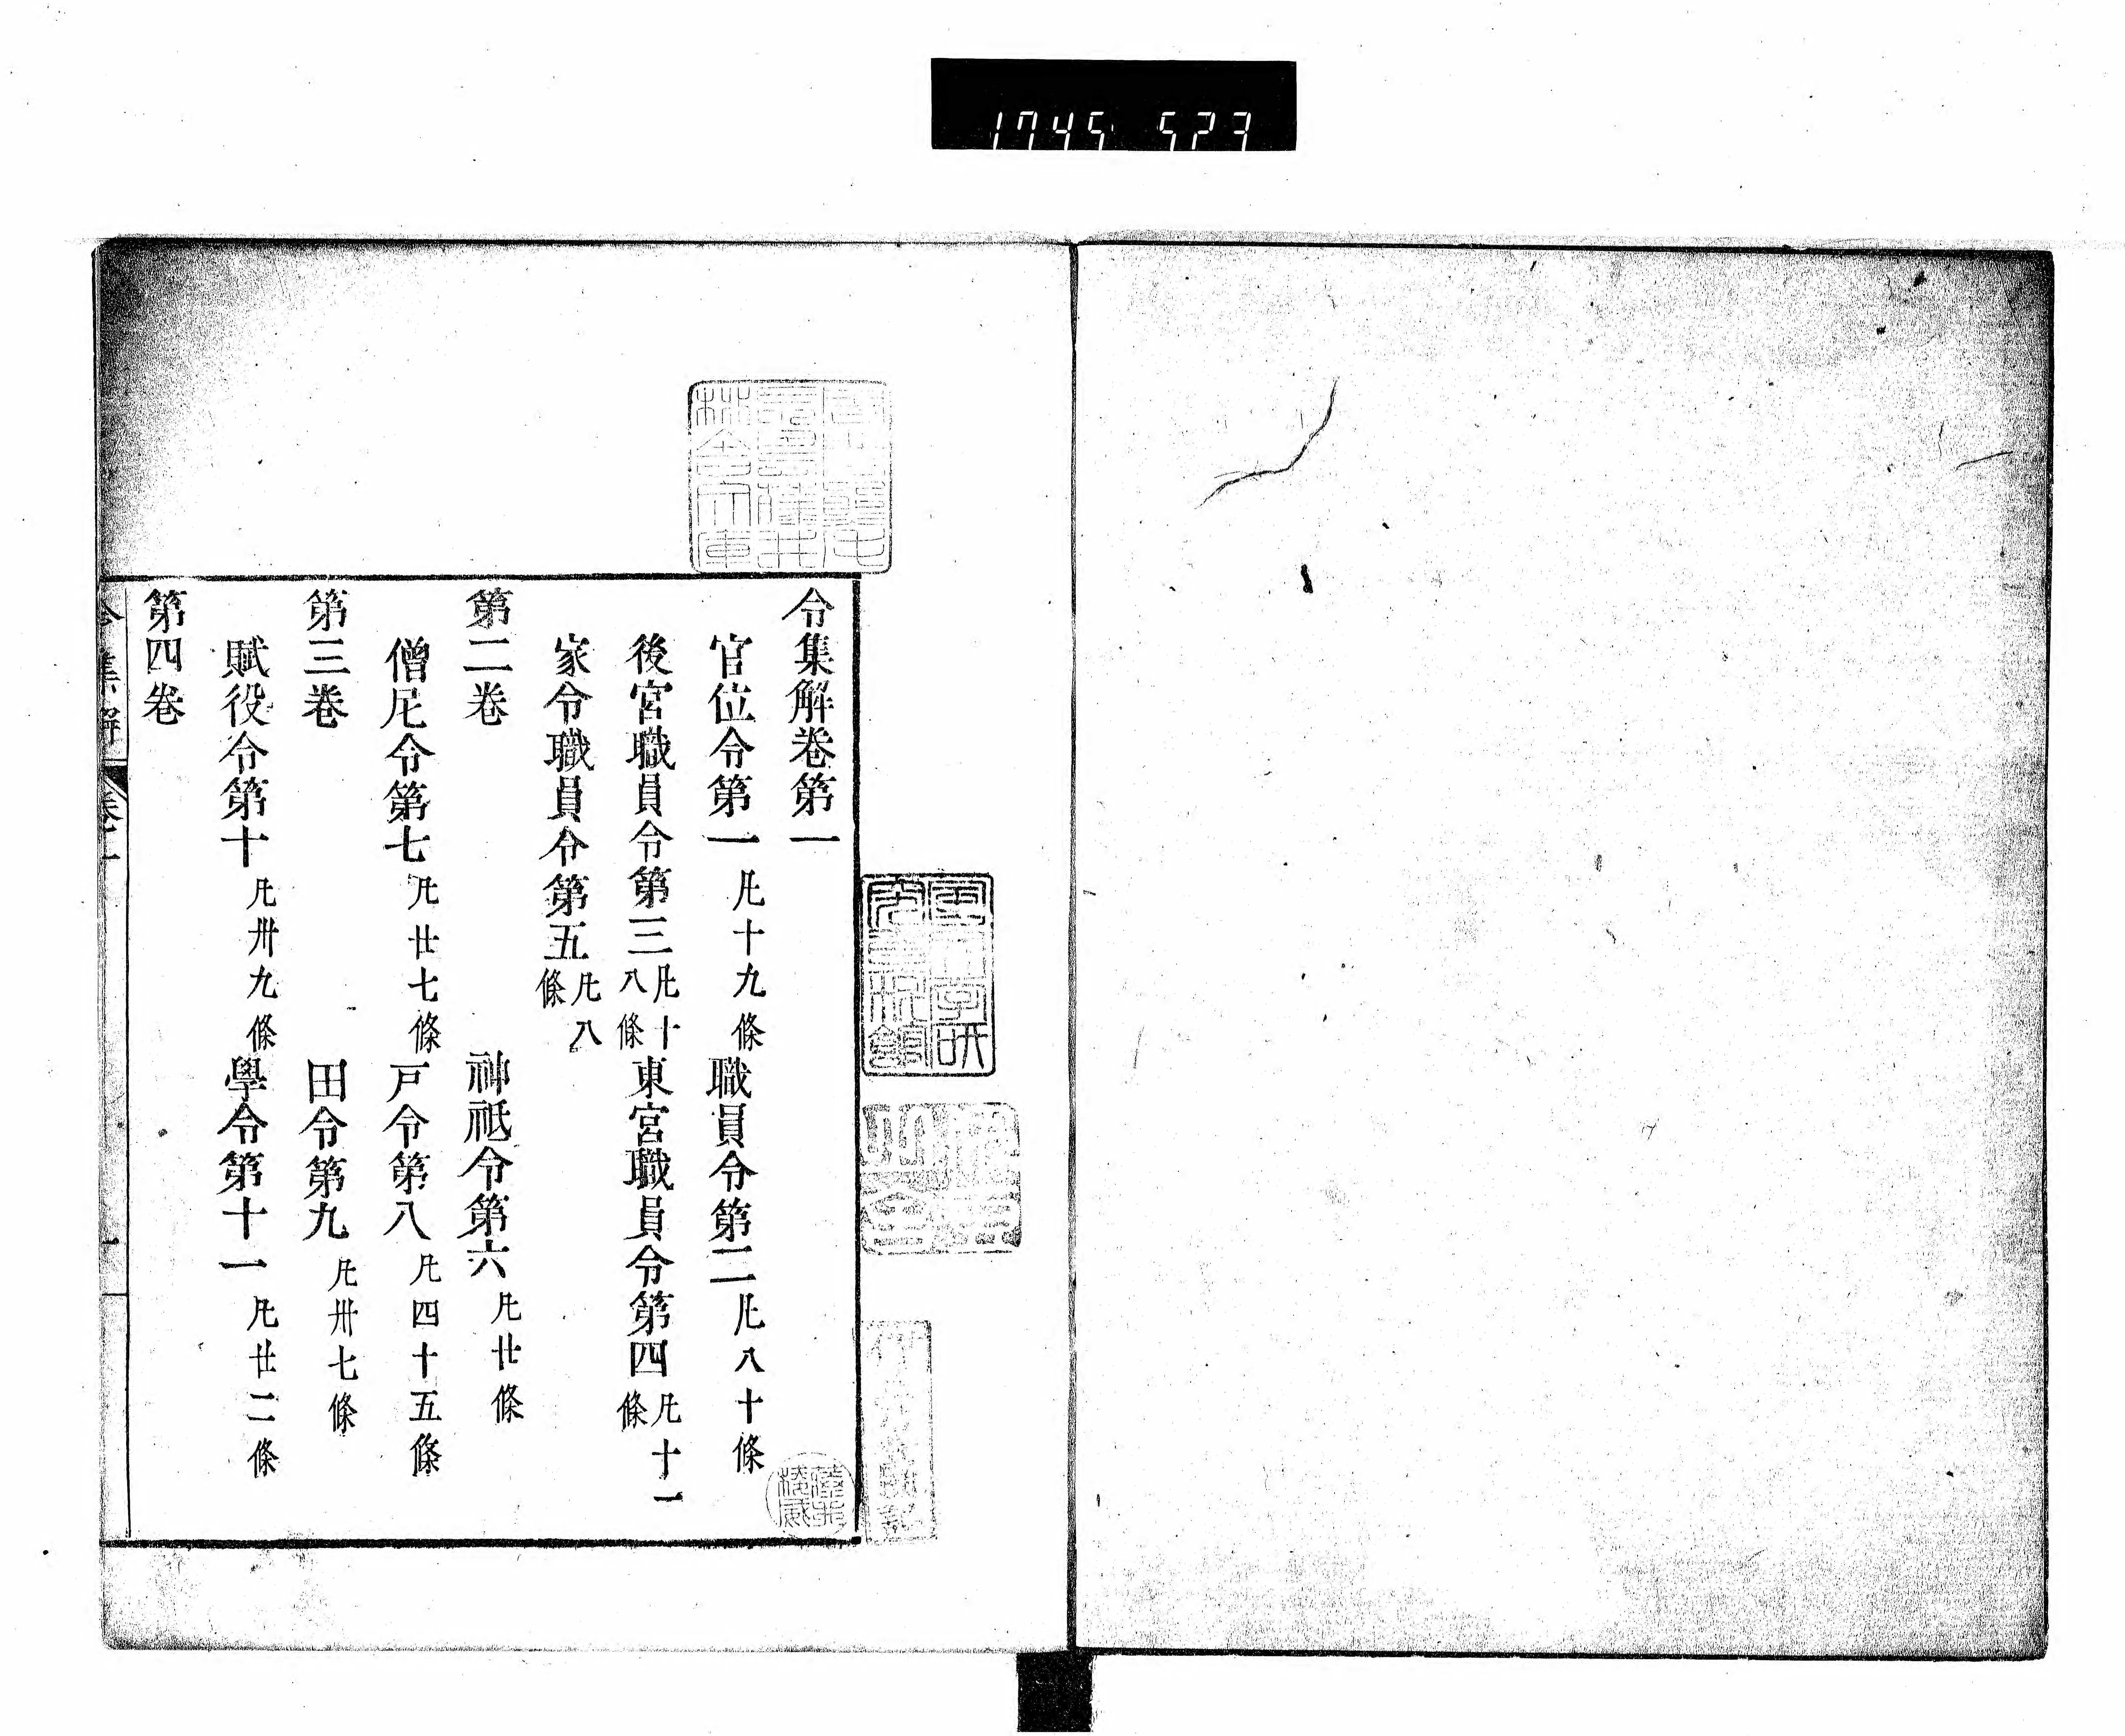 1745 523
令集解卷第一
官位令第一 凡十九條 職員令第二 凡八十條
後宮職員令第三 凡十八條 東宮職員令第四 凡十一條
家令職員令第五 凡八條
第二卷 神祇令第六 凡廿條
僧尼令第七 凡廿七條 戸令第八 凡四十五條
第三卷 田令第九 凡卅七條
賦役令第十 凡卅九條 學令第十一 凡廿二條
第四卷
令集解 卷一 一